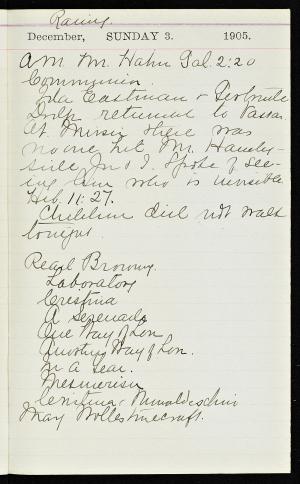 Rainy.
December, SUNDAY 3. 1905.
AM Mr. Hahn Gal. 2:20
Communion.
Ida Eastman + Gertrude
returned to Vassar.
At Music there was
no one but Mr.
Spoke of see-
ing him who is invisible
Heb. 11:27.
did not walk
tonight.
Read Browning.
Laboratory
Cristina
A Serenade
One Way of Love
Another Way of Love.
In a Year.
Mesmerism
Cristina + Monaldeschi
Mary Wollstonecraft.